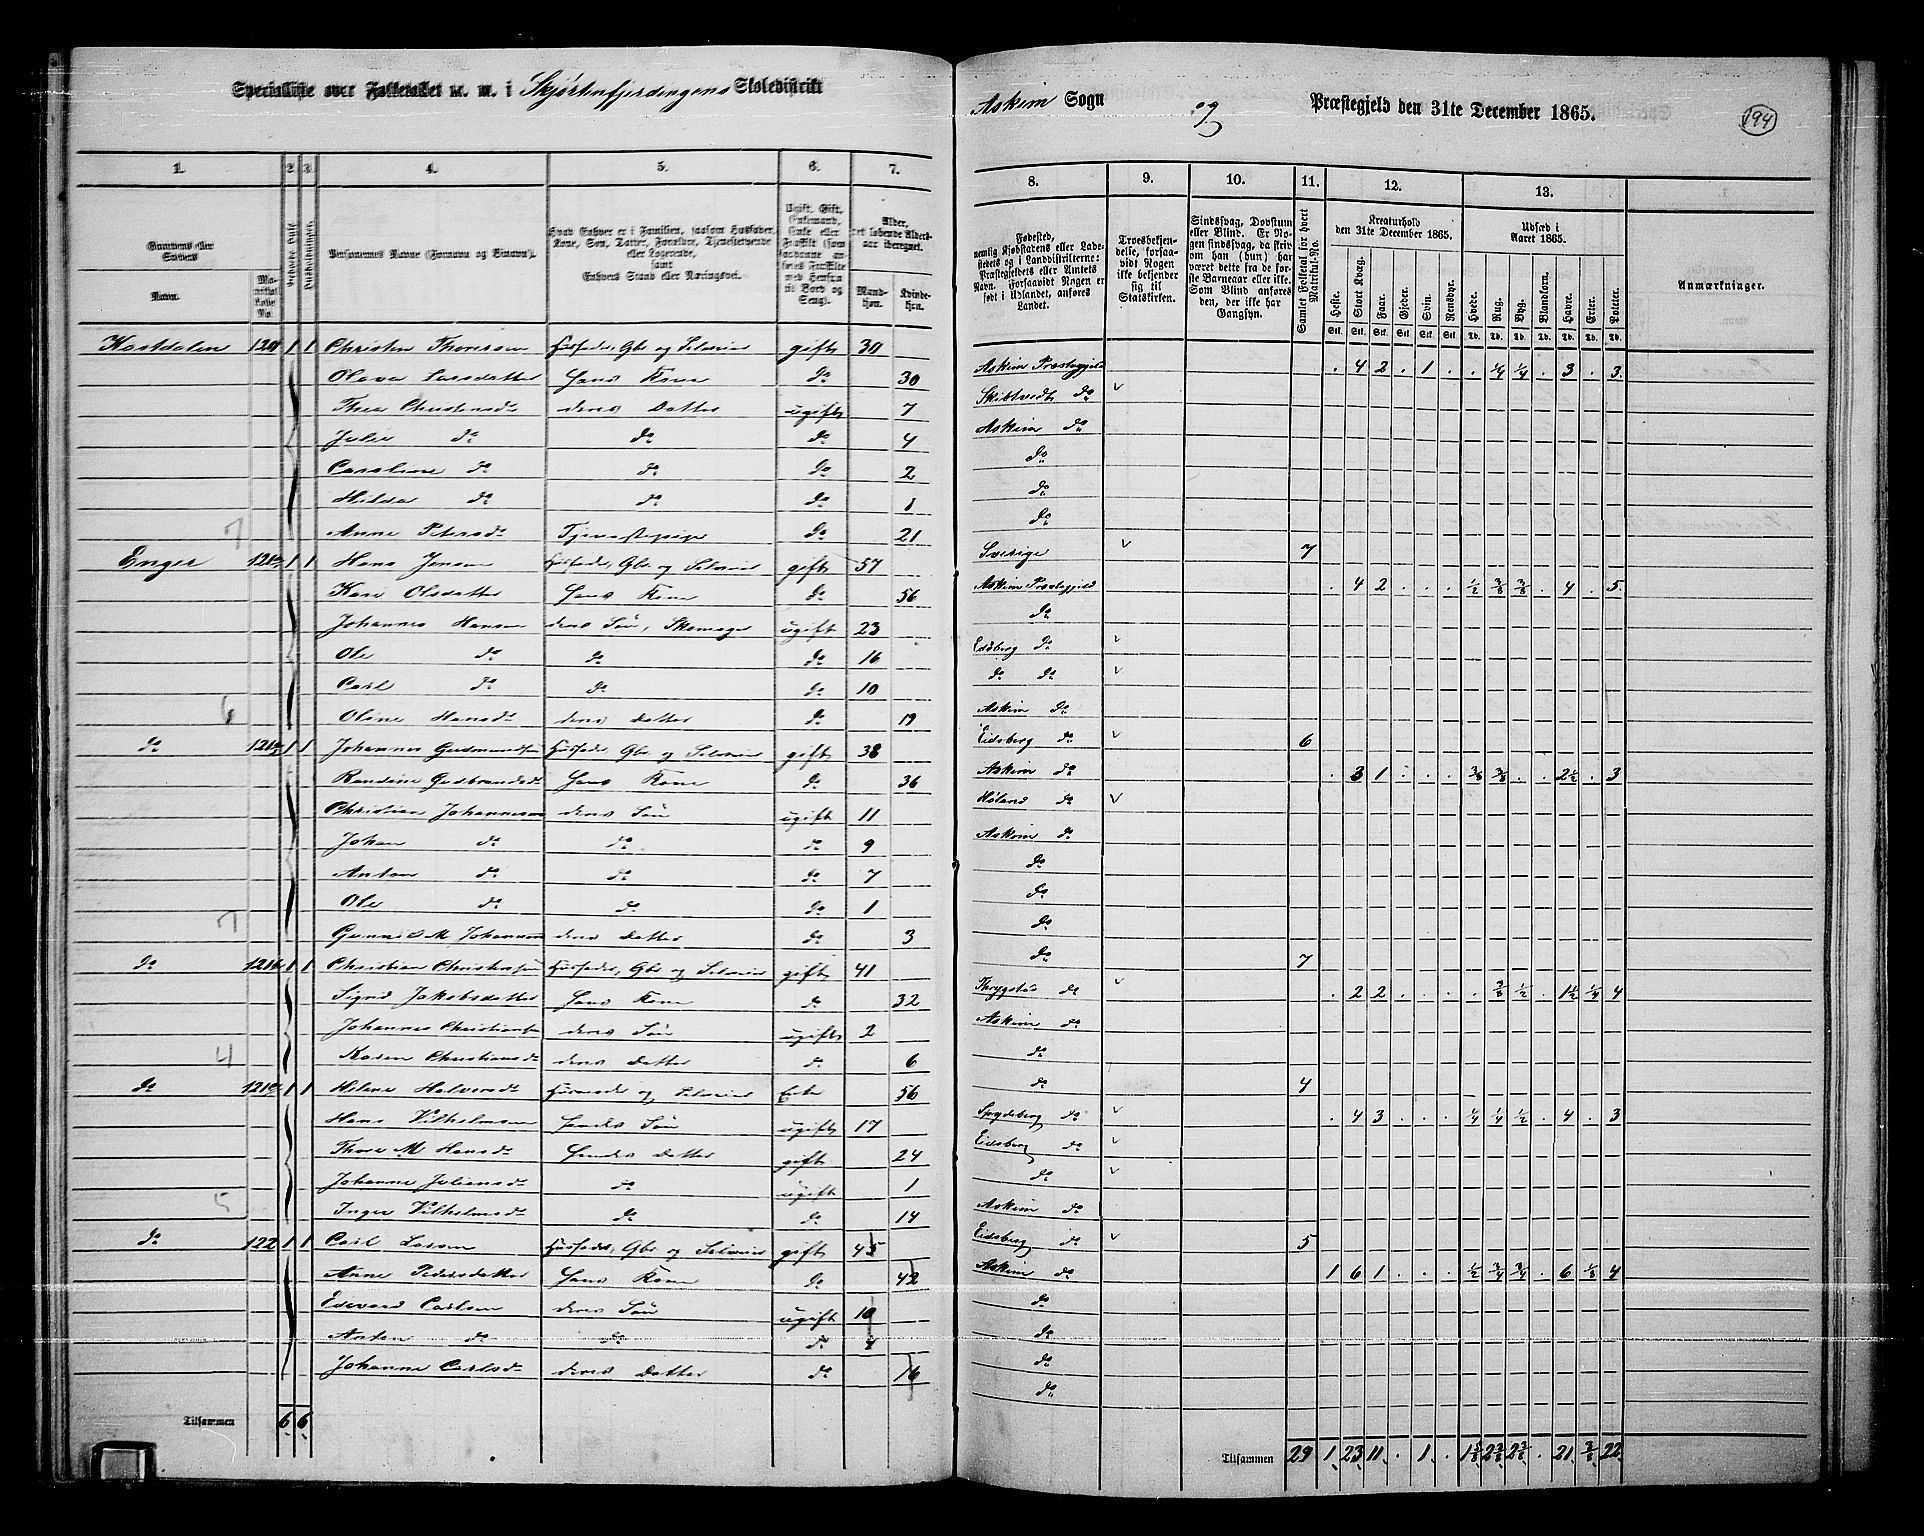 Specialliste over Folketallet m. m. i Skjørtenfjerdingens Skoledistrikt
Askim Sogn og Præstegjeld den 31te December 1865.
194
1. 2. 3. 4. 5. 6. 7.
Gaardens eller Stedets Navn. Matrikul Løbe No. Beboede Huse. Husholdninger. Personernes Navne (Fornavn og Tilnavn). Hvad Enhver er i Familien, saasom Husfader, Kone, Søn, Datter, Forældre, Tjenestetyende eller Logerende, samt Enhvers Stand eller Næringsvei. Ugift, Gift, Enkemand, Enke eller Fraskilt Alder, det løbende Aldersaar iberegnet. Mandkjøn. Kvindekjøn.
Kastdalen 120 1 1 Christen Thoresen Husfader, Gbr. og Selveier gift 30
Olava Larsdatter Hans Kone do 30
Thea Christensd. deres Datter ugift 7
Julie do do do 4
Caroline do do do 2
Hilda do do do 1
7 Anne Petersd. Tjenestepige do 21
Enger 121 1 1 Hans Jensen Husfader, Gbr. og Selveier gift 57
Kari Olsdatter Hans Kone do 56
Johannes Hansen deres Søn, Skomager ugift 23
Ole do do do 16
Carl do do do 10
6 Oline Hansd. deres Datter do 19
do 121 1 1 Johannes Gudmundsen Husfader, Gbr. og Selveier gift 38
Randine Gudbrandsd. Hans Kone do 36
Christian Johannesen deres Søn ugift 11
Johan do do do 9
Anton do do do 7
Ole do do do 1
7 Gunnild M Johannesd. deres Datter do 3
do 121 1 1 Christian Christensen Husfader, Gbr. og Selveier gift 41
Sigrid Jakobsdatter Hans Kone do 32
Johannes Christiansen deres Søn ugift 2
4 Karen Christiansd. deres Datter do 6
do 121 1 1 Helene Halvorsd. Husmoder og Selveier Enke 56
Hans Vilhelmsen Hendes Søn ugift 17
Thore M Hansd. Hendes Datter gift 24
Johanne Juliensd. do ugift 1
5 Inger Vilhelmsd. do do 14
do 122 1 1 Carl Larsen Husfader, Gbr. og Selveier gift 45
Anne Pedersdatter Hans Kone do 42
Edvard Carlsen deres Søn ugift 10
Anton do do do 4
Johanne Carlsd. deres Datter do 16
Tilsammen 6 6
8. 9. 10. 11. 12. 13.
Fødested, nemlig Kjøbstadens eller Ladestedets og i Landdistrikterne: Præstegjeldets eller Amtets Navn. Forsaavidt Nogen er født i Udlandet, anføres Landet.
Troesbekjendelse, forsaavidt Nogen ikke bekjender sig til Statskirken.
Sindssvag, Døvstum eller Blind. Er Nogen sindssvag, da skrives om han (hun) har været dette fra de første Barneaar eller ikke. Som Blind anføres den, der ikke har Gangsyn.
Samlet Folketal for hvert Matrikul-No.
Kreaturhold den 31te December 1865.
Heste. Stort Kvæg. Faar. Gjeder. Svin. Rensdyr.
Udsæd i Aaret 1865.
Hvede. Rug. Byg. Blandkorn. Havre. Erter. Poteter.
Anmærkninger.
Askim Præstegjeld . 4 2 . 1 . . 1/4 1/4 . 3 . 3
Skibtvedt do
Askim do
do
do
do
Sverige 7
Askim Præstegjeld . 4 2 . . . 1/2 3/8 3/8 . 4 . 5
do
Edsberg do
do do
Askim do
Eidsberg do 6
Askim do . 3 1 . . . 3/8 3/8 . . 2 1/2 . 3
Høland do
Askim do
do
do
do
do 7
Trygstad do . 2 2 . . . . 3/8 1/2 . 1 1/2 1/4 4
Askim do
do
do 4
Spydeberg do . 4 3 . . . 1/4 1/4 1/2 . 4 . 3
Eidsberg do
do
Askim do
Eidsberg do 5
Askim do 1 6 1 . . . 1/2 3/4 3/4 . 6 1/8 4
do
do
do
do
Tilsammen 29 1 23 11 . 1 . 1 5/8 2 3/8 2 3/8 . 21 3/8 22